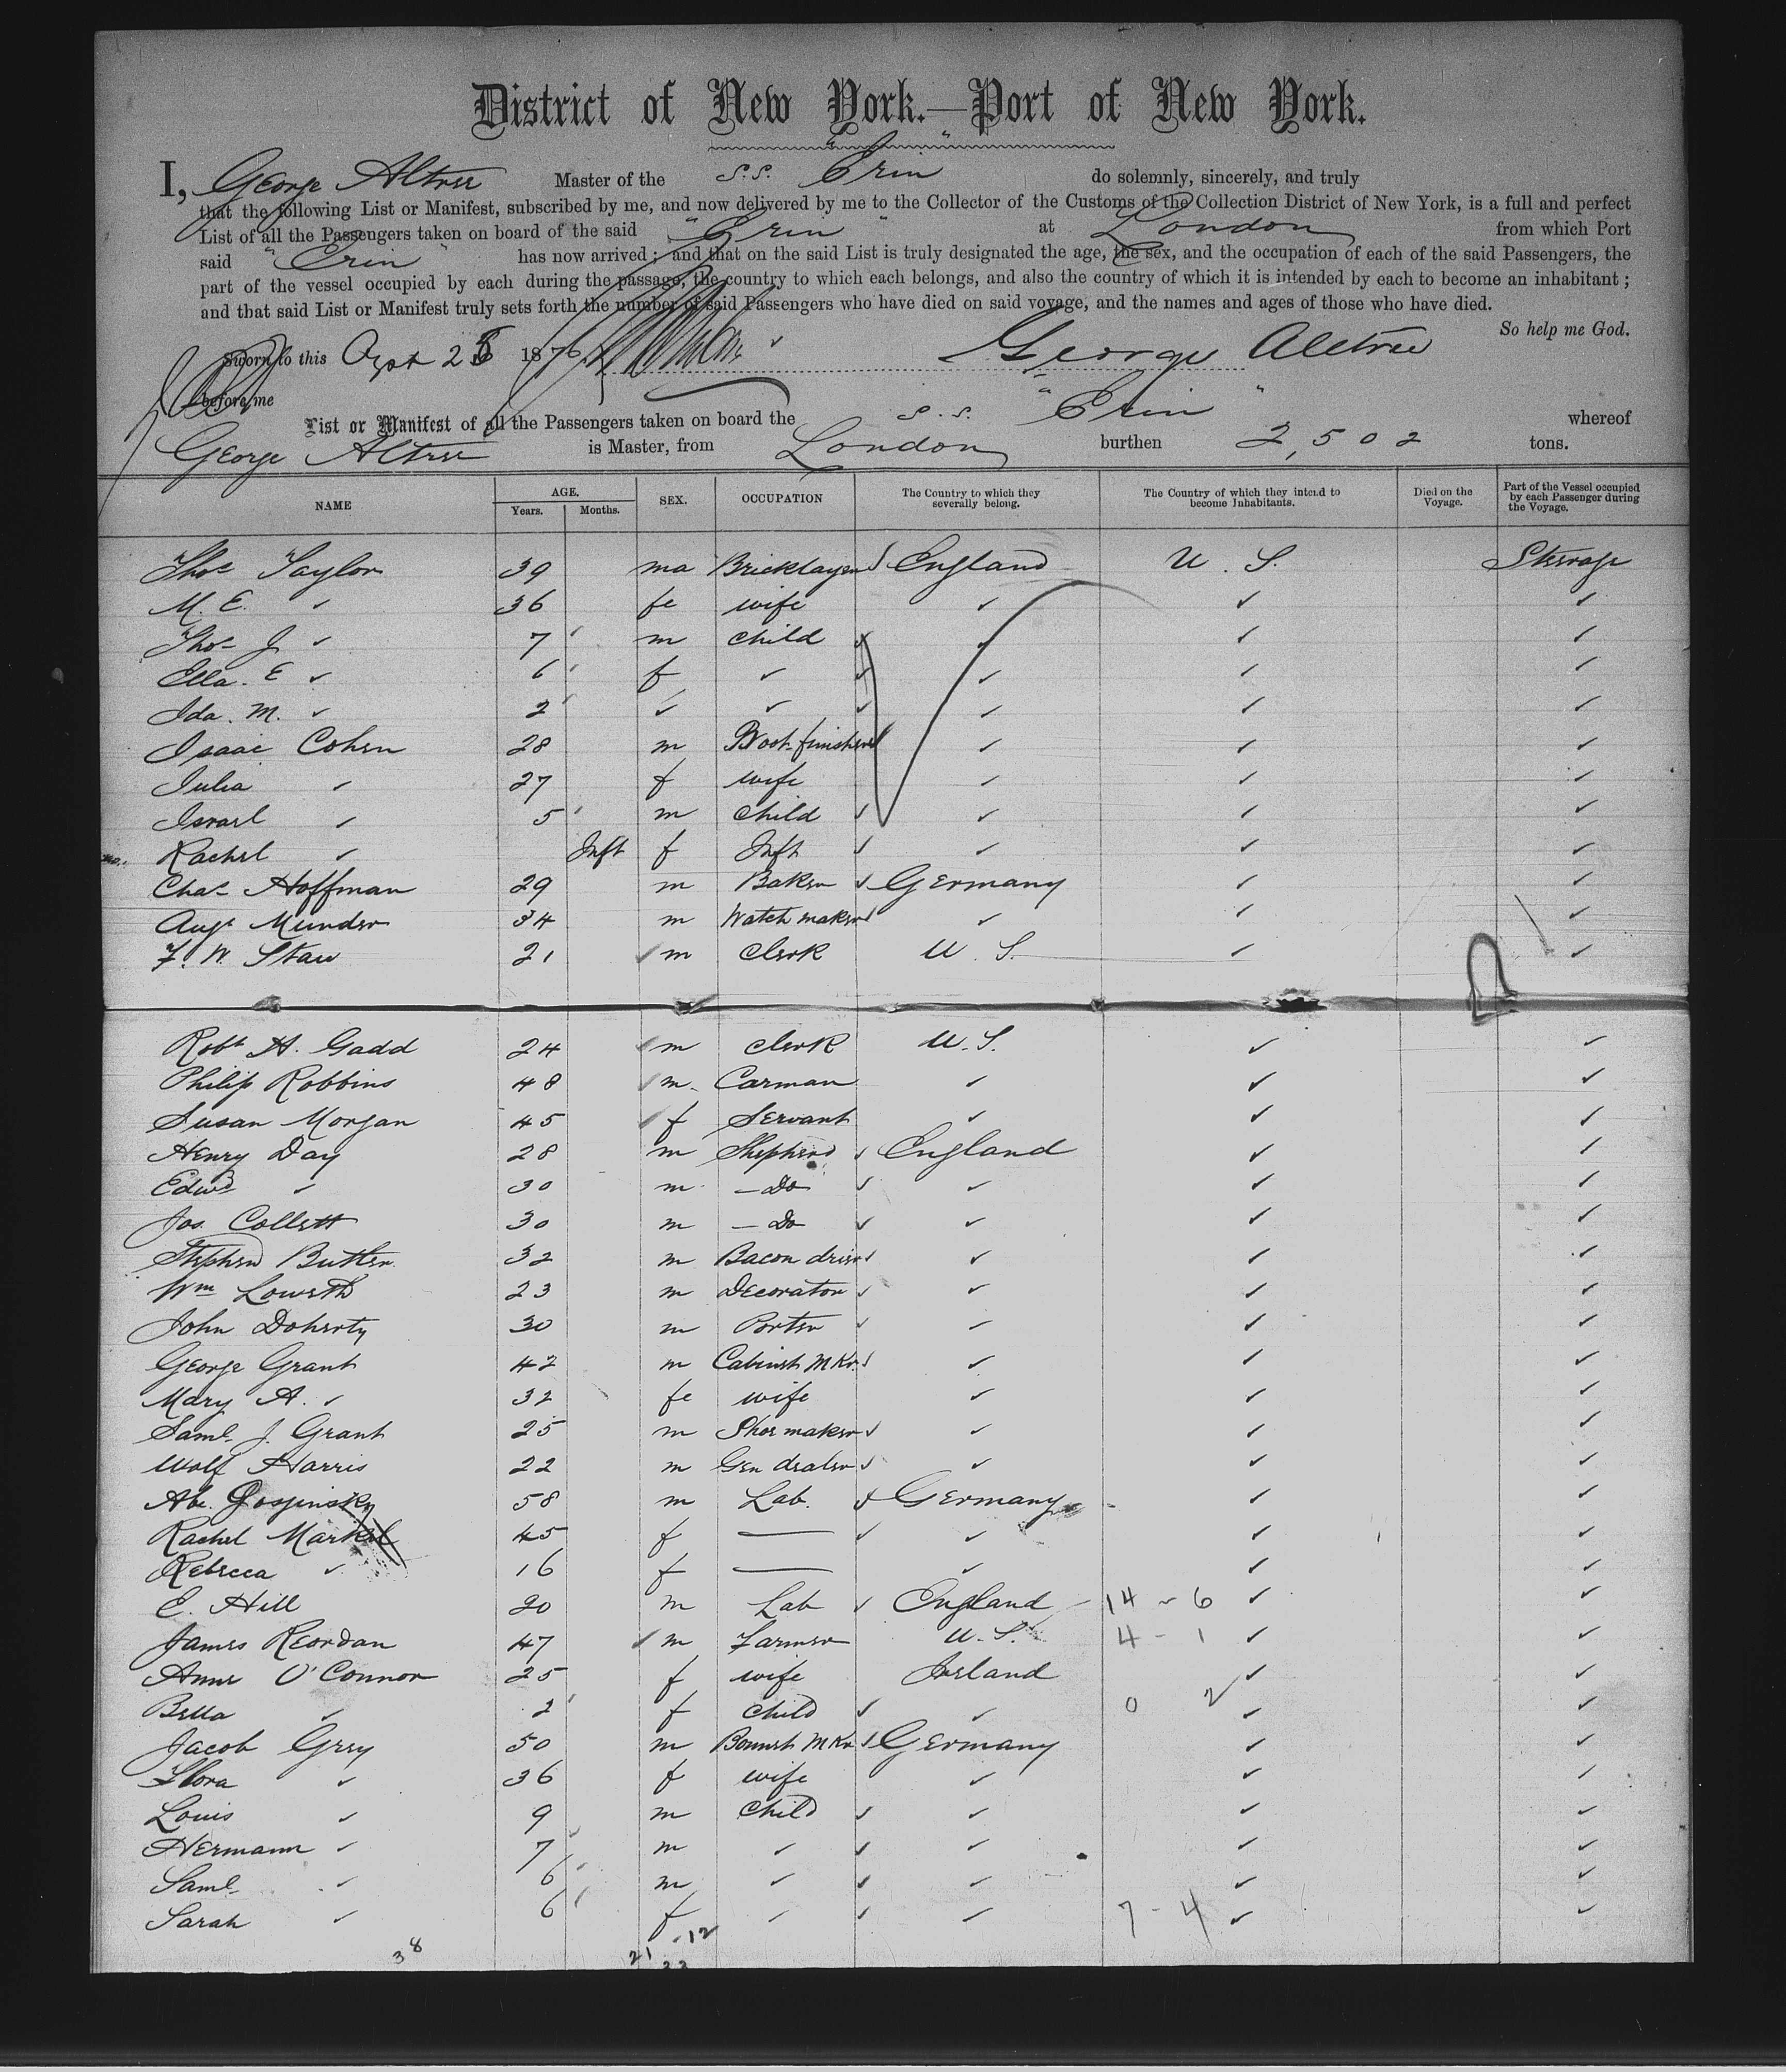 District of New York.—Port of New York.
I, George Altree Master of the S.S. "Erin" do solemnly, sincerely, and truly
that the following List or Manifest, subscribed by me, and now delivered by me to the Collector of the Customs of the Collection District of New York, is a full and perfect
List of all the Passengers taken on board of the said "Erin" at London from which Port
said "Erin" has now arrived; and that on the said List is truly designated the age, the sex, and the occupation of each of the said Passengers, the
part of the vessel occupied by each during the passage, the country to which each belongs, and also the country of which it is intended by each to become an inhabitant;
and that said List or Manifest truly sets forth the number of said Passengers who have died on said voyage, and the names and ages of those who have died.
So help me God.
Sworn to this 1876 George Altree
before me
List or Manifest of all the Passengers taken on board the S.S. "Erin" whereof
George Altree is Master, from London burthen 2,502 tons.
NAME AGE. Years. Months. SEX. OCCUPATION The Country to which they severally belong. The Country of which they intend to become Inhabitants. Died on the Voyage. Part of the Vessel occupied by each Passenger during the Voyage.
Thos Taylor 39 ma Bricklayer ✓ England U.S. Steerage
M. E. ✓ 36 fe wife ✓ ✓ ✓
Thos J ✓ 7 m child ✓ ✓ ✓ ✓
Ella. E ✓ 6 f ✓ ✓ ✓ ✓ ✓
Ida. M. ✓ 2 ✓ ✓ ✓ ✓ ✓ ✓
Isaac Cohen 28 m Boot finisher ✓ ✓ ✓ ✓
Julia ✓ 27 f wife ✓ ✓ ✓
Israel ✓ 5 m child ✓ ✓ ✓ ✓
Rachel ✓ Inft f Inft ✓ ✓ ✓ ✓
Chas Hoffman 29 m Baker ✓ Germany ✓ ✓
Augt Munder 34 m Watch maker ✓ ✓ ✓ ✓
F. W. 21 ✓ m Clerk U.S. ✓ ✓
Robt H. Gadd 24 ✓ m Clerk U.S. ✓ ✓
Philip Robbins 48 ✓ m Carman ✓ ✓ ✓
Susan Morgan 45 ✓ f Servant ✓ ✓ ✓
Henry Day 28 m Shepherd ✓ England ✓ ✓
Edwd ✓ 30 m — Do ✓ ✓ ✓ ✓
Jos. Collett 30 m — Do ✓ ✓ ✓ ✓
Stephen Butler 32 m Bacon drier ✓ ✓ ✓ ✓
Wm Loweth 23 m Decorator ✓ ✓ ✓ ✓
John Doherty 30 m Porter ✓ ✓ ✓ ✓
George Grant 42 m Cabinet Mkr. ✓ ✓ ✓ ✓
Mary A. ✓ 32 fe wife ✓ ✓ ✓
Saml. J. Grant 25 m Shoe maker ✓ ✓ ✓ ✓
Wolf Harris 22 m Gen dealer ✓ ✓ ✓ ✓
Abe. 58 m Lab. ✓ Germany ✓ ✓
Rachel Markel 45 f — ✓ ✓ ✓ ✓
Rebecca ✓ 16 f — ✓ ✓ ✓
E. Hill 20 m Lab ✓ England 14 - 6 ✓ ✓
James Reordan 47 ✓ m Farmer U.S. 4 - 1 ✓ ✓
Anne O'Connor 25 f wife Ireland ✓ ✓
Bella ✓ 2 f child ✓ ✓ 0 2 ✓ ✓
Jacob Grey 50 m Bonnet Mkr ✓ Germany ✓ ✓
Flora ✓ 36 f wife ✓ ✓ ✓
Louis ✓ 9 m child ✓ ✓ ✓ ✓
Hermann ✓ 7 m ✓ ✓ ✓ ✓ ✓
Saml. ✓ 6 m ✓ ✓ ✓ ✓ ✓
Sarah ✓ 6 f ✓ ✓ ✓ 7 - 4 ✓ ✓
38 21 .12